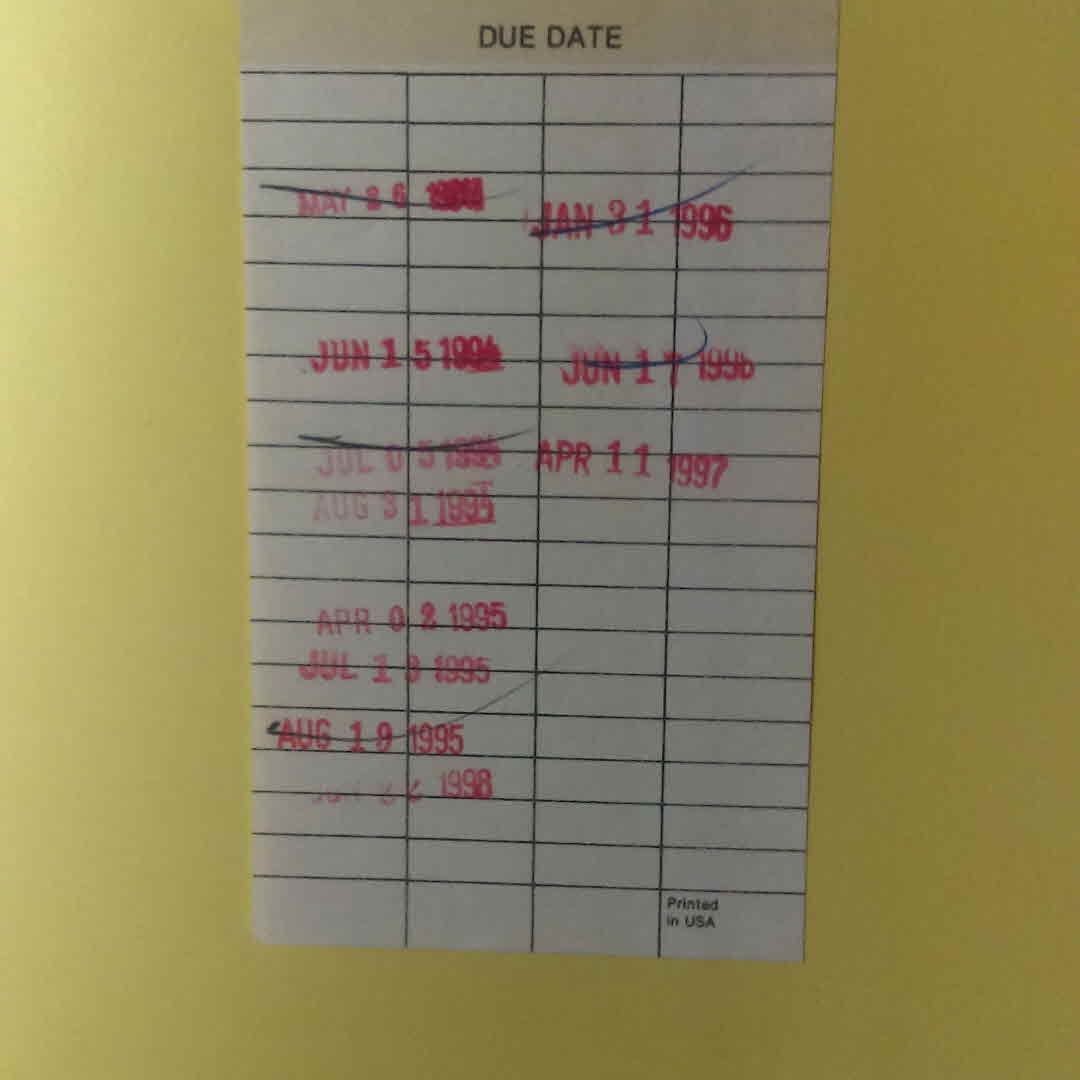 DUE DATE
MAY 26
JAN 31 1996
JUN 15 1994
JUN 17 1996
JUL 05
APR 11 1997
AUG 31
APR 02 1995
JUL 1 1995
AUG 19 1995
1998
Printed
in USA